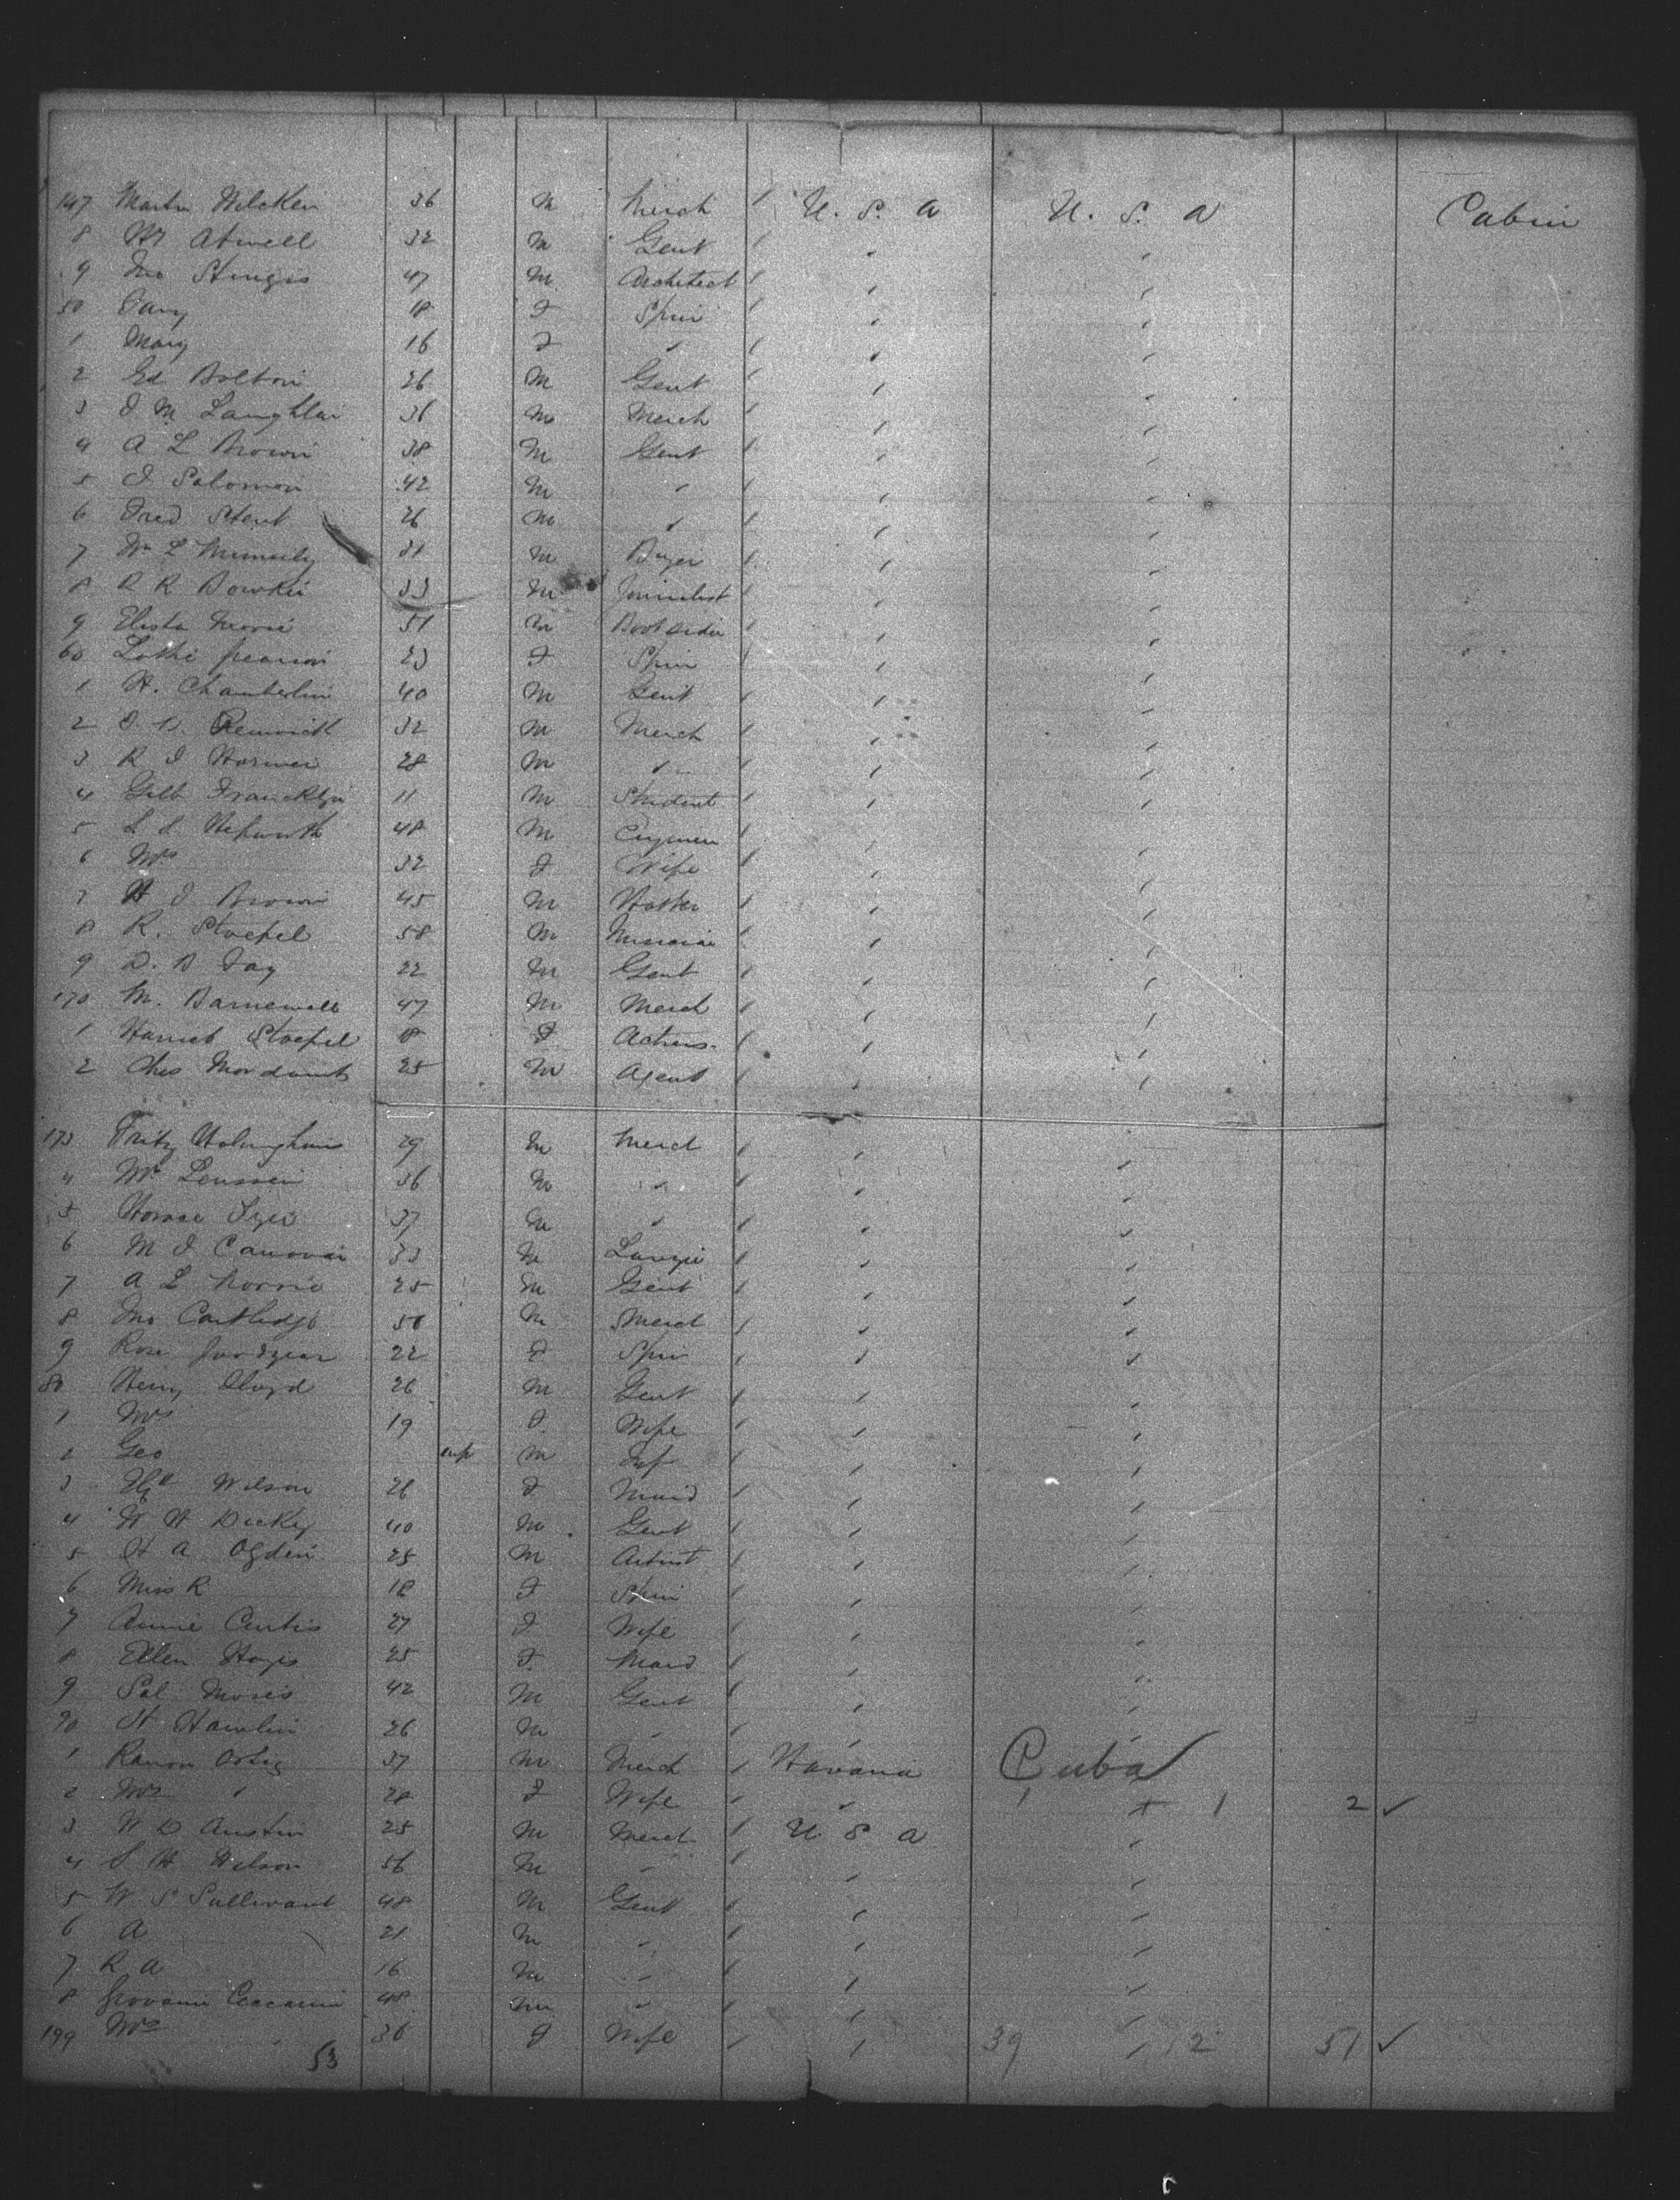 147 Martin Wilcken 36 M Merch / U. S. A U. S. A Cabin
8 Wr Atwell 32 M Gent /
9 Jno Sturgis 47 M Architect /
50 Fany 18 F Spin /
1 Mary 16 F " /
2 Ed Bolton 26 M Gent /
3 J M Laughlin 36 M Merch /
4 A L Brown 38 M Gent /
5 J Solomon 42 M " /
6 Fred Stent 26 M " /
7 Wm L 31 M Buyer /
8 R R Bowker 33 M Journalist /
9 Elisha Morse 51 M /
60 Lothe Pearson 23 F Spin /
1 H. Chamberlin 40 M Gent /
2 J. H. Renwick 32 M Merch /
3 R J 28 M " /
4 Gilb Francklyn 11 M Student /
5 Hepworth 48 M /
6 Mrs 32 F Wife /
7 H J Brown 45 M Hatter /
8 R. Stoepel 58 M /
9 D. B Fay 22 M Gent /
170 M. Barnewall 47 M Merch /
1 Harriet Stoepel 18 F Actress /
2 Ches Mordaunt 25 M Agent /
173 Fritz 29 M Merch /
4 Wm Lenssen 36 M " /
5 Horace 37 M " /
6 M J Canovan 33 M /
7 A L Norrie 25 M Gent /
8 Jno Cartledge 50 M Merch /
9 Rose Goodyear 22 F Spin /
80 Henry Lloyd 26 M Gent /
1 Mrs 19 F Wife /
2 Geo inf M Inf /
3 Wilson 26 F Maid /
4 W H Dickey 40 M Gent /
5 H A Ogden 25 M Artist /
6 Miss R 18 F Spin /
7 Annie Curtis 27 F Wife /
8 Ellen Hayes 25 F Maid /
9 Sol Moses 42 M Gent /
90 H Hamlin 26 M " /
1 Ramon Ortiz 37 M Merch / Havana Cuba
2 Mrs " 28 F Wife / " 1 + 1 2 ✓
3 W D Austin 25 M Merch / U S A
4 S H Wilson 56 M " /
5 W S Sullivant 48 M Gent /
6 A 21 M " /
7 R A 16 M " /
8 Giovanni Ceccarini 48 M " /
199 Mrs " 36 F Wife / 39 12 51 ✓
53